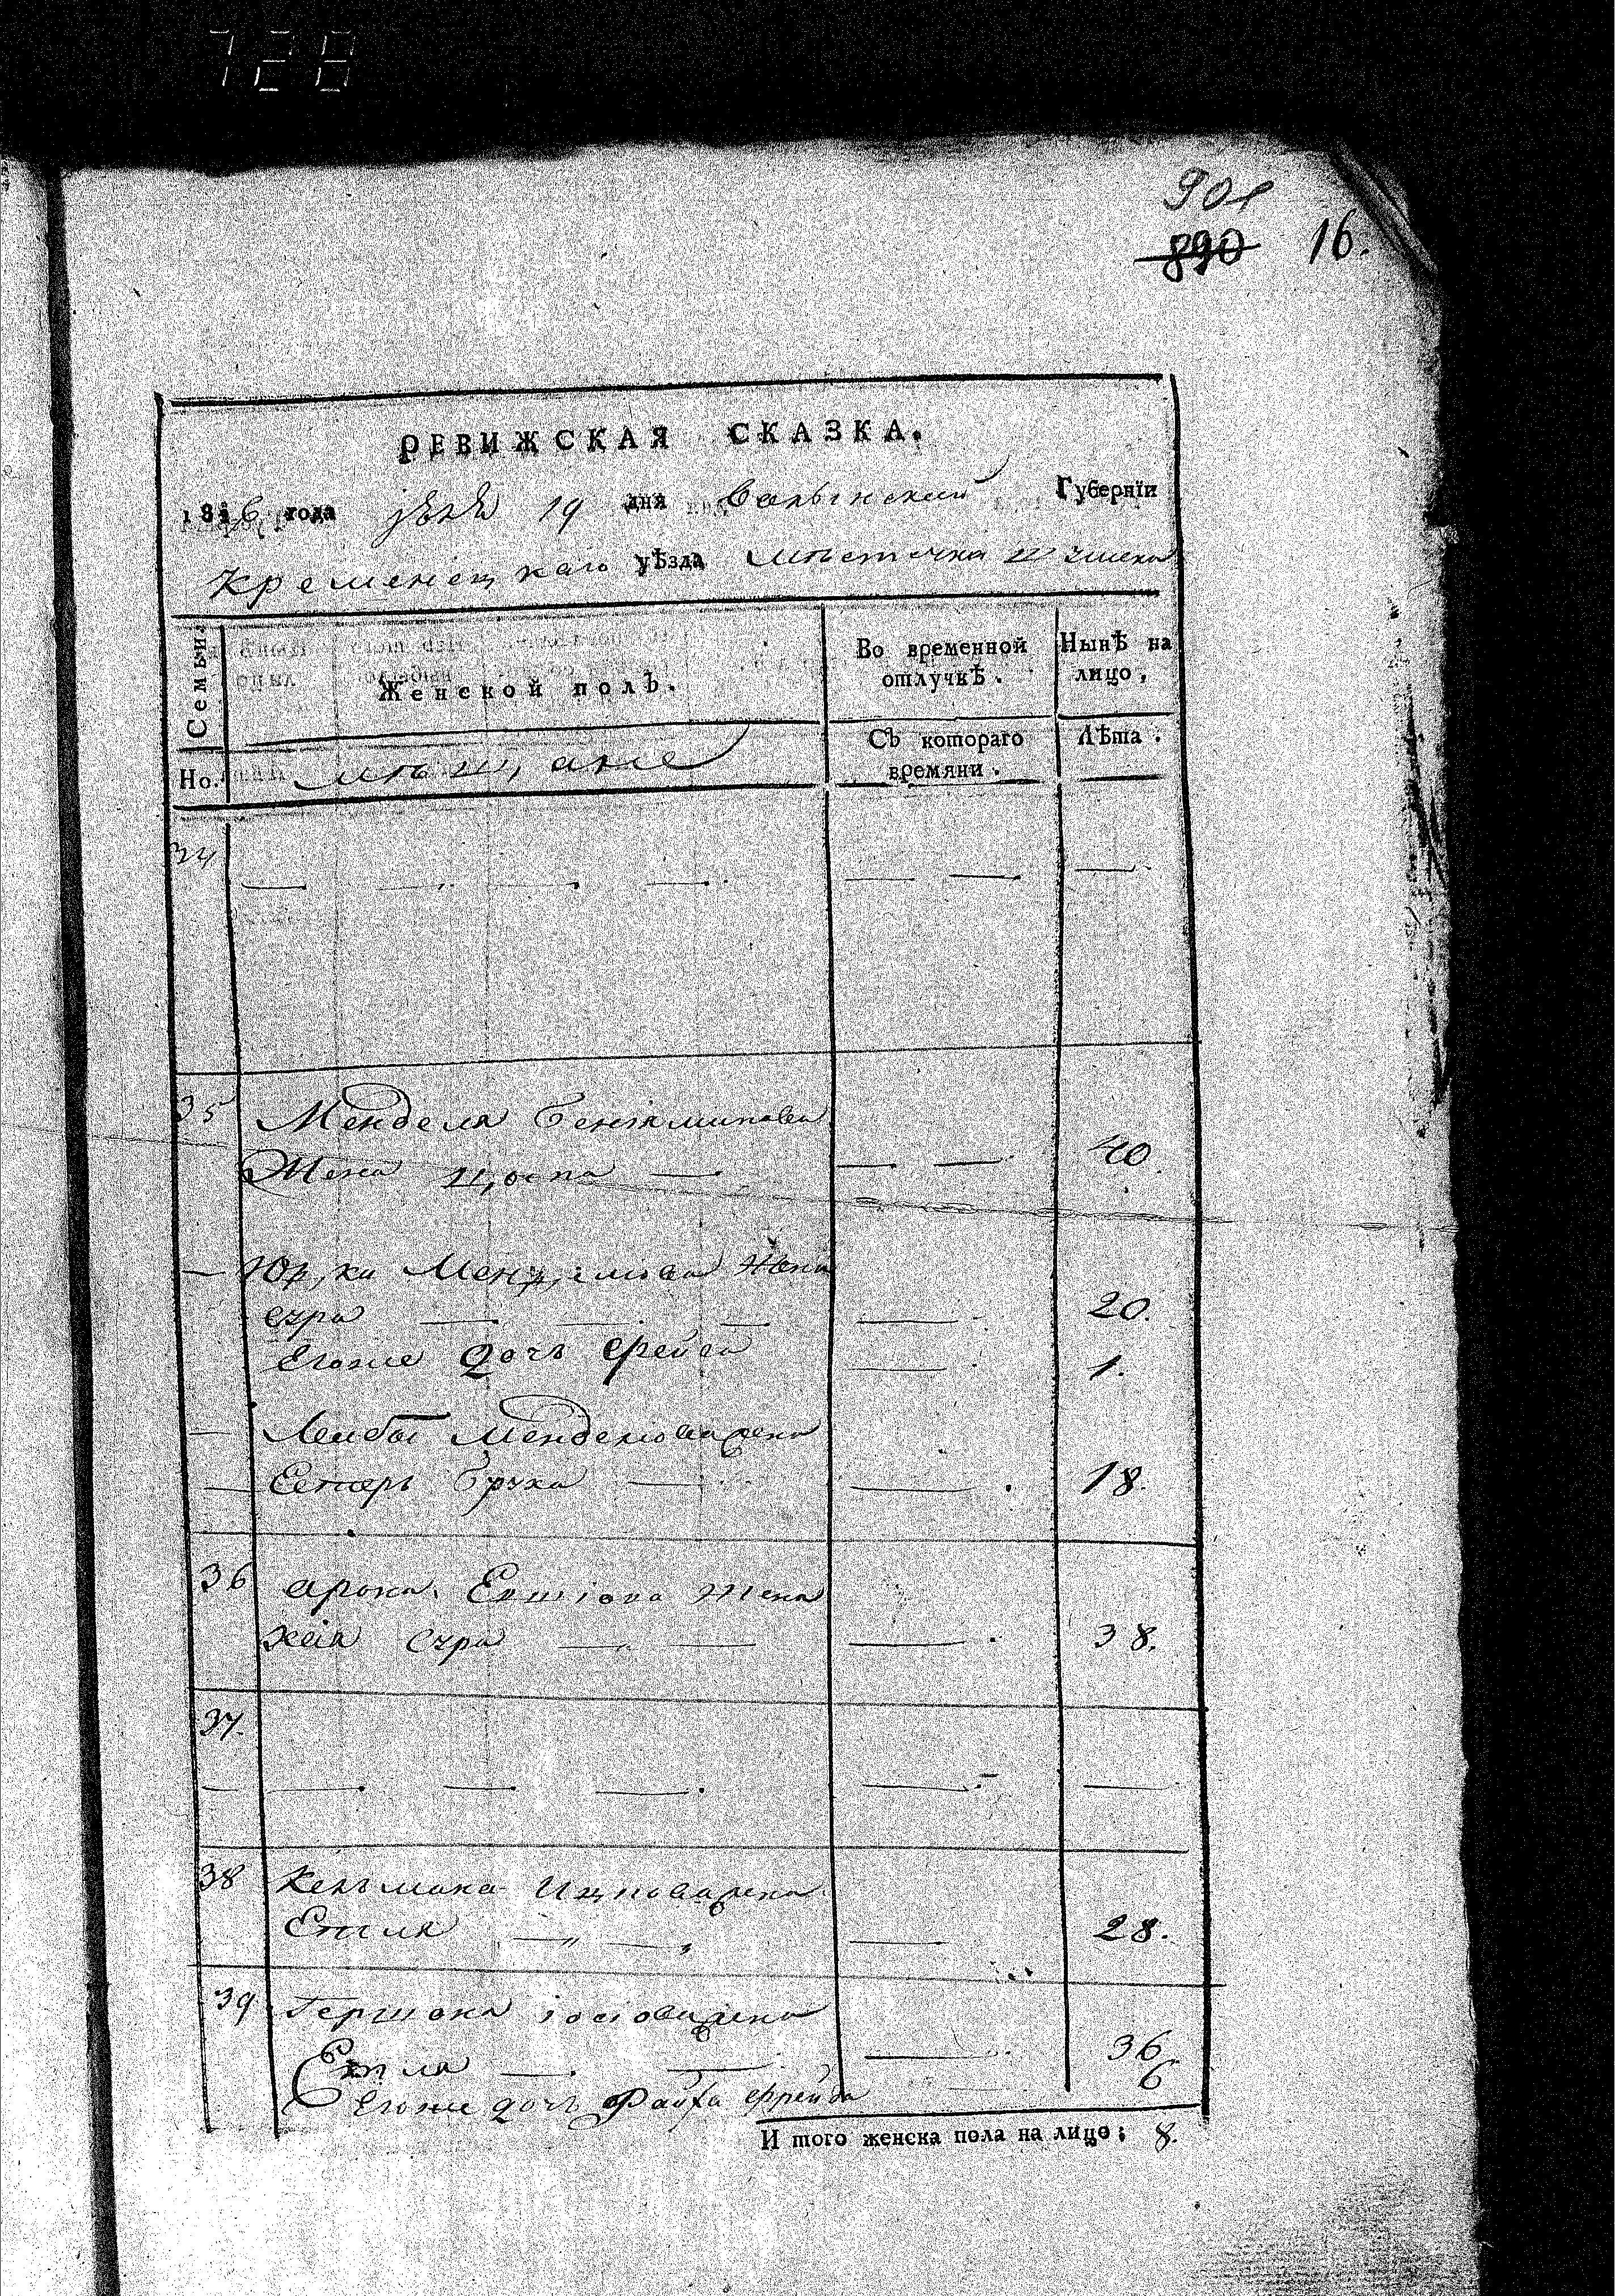 728
901
890 16.
РЕВИЖСКАЯ СКАЗКА.
1816 года 19 дня Волынский Губернїи
Кременецкаго уѣзда местечка
Семьи. Женской полъ. Во временной отлучкѣ. Нынѣ на лицо,
Но. мѣщане Съ котораго времяни. Лѣта.
34
35 Менделя Бениаминова
Жена Цюпа 40.
Менделиова жена
езра 20.
Егоже дочь Фрейда 1.
Лейбы Менделиова жена
Естерь Бруха 18.
36 арона Жена
хаія Сура 38.
37.
38 Кельмана Ицковажена
Етля 28.
39 Гершона іосіоважена
Етля 36
Егоже дочь Файга Фрейда 6
И того женска пола на лицо: 8.